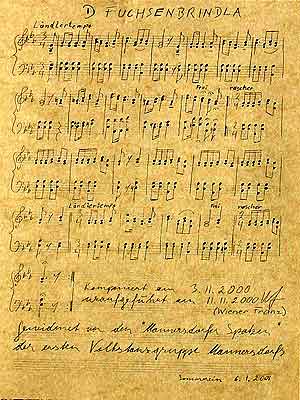 ① FUCHSENBRINDLA
Ländlertempo
frei rascher
Ländlertempo frei rascher
Komponiert am 3. 11. 2000
uraufgeführt am 11. 11. 2000
(Wiener Franz)
Gewidmet von den "Mannersdorfer Spatzen"
der ersten Volkstanzgruppe Mannersdorfs
Sommerein 6. 1. 2001